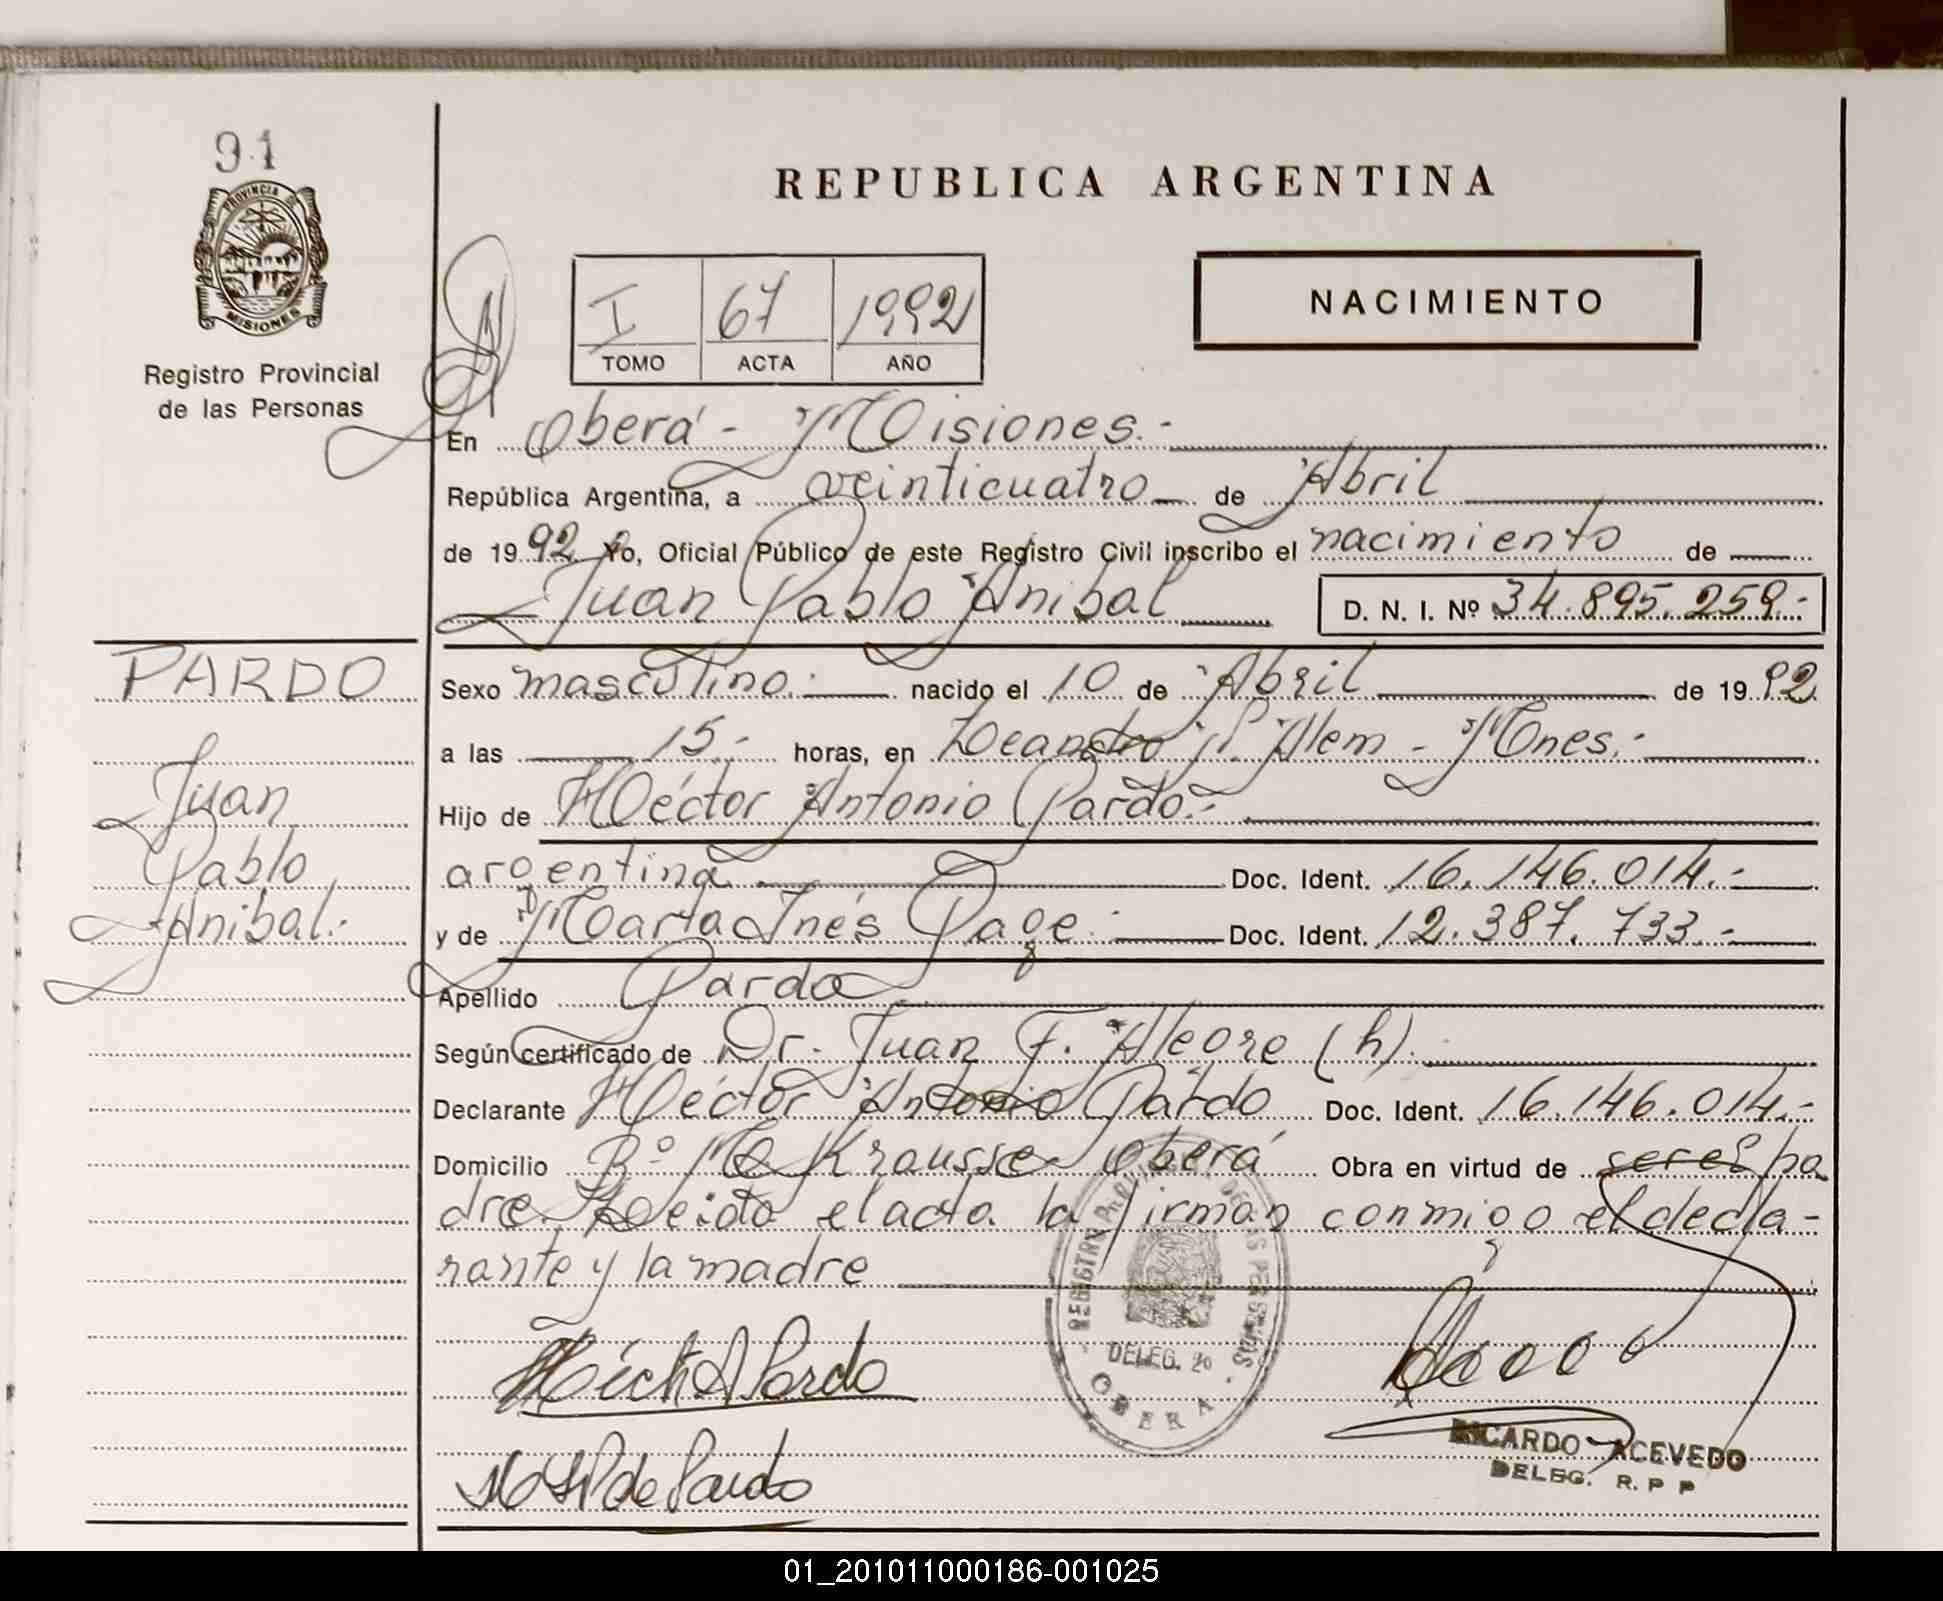 91
PROVINCIA
MISIONES
Registro Provincial
de las Personas
REPUBLICA ARGENTINA
I 67 1992
TOMO ACTA AÑO
NACIMIENTO
En Oberá - Misiones.-
República Argentina, a veinticuatro de Abril
de 1992 Yo, Oficial Público de este Registro Civil inscribo el nacimiento de
Juan Pablo Anibal D. N. I. Nº 34.895.259.-
PARDO
Juan
Pablo
Anibal.-
Sexo masculino.- nacido el 10 de Abril de 1992
a las 15.- horas, en Leandro N. Alem - Mnes.-
Hijo de Héctor Antonio Pardo.-
argentina Doc. Ident. 16.146.014.-
y de Marta Inés Page.- Doc. Ident. 12.387.733.-
Apellido Pardo
Según certificado de Dr. Juan F. Alegre (h).
Declarante Héctor Antonio Pardo Doc. Ident. 16.146.014.-
Domicilio Bº Krausse Oberá Obra en virtud de ser el pa
dre. Leida el acta la firman conmigo el decla-
rante y la madre
Héctor A Pardo
de Pardo
REGISTRO PROVINCIAL DE LAS PERSONAS
DELEG. 20
OBERA
RICARDO ACEVEDO
DELEG. R. P P
01_201011000186-001025